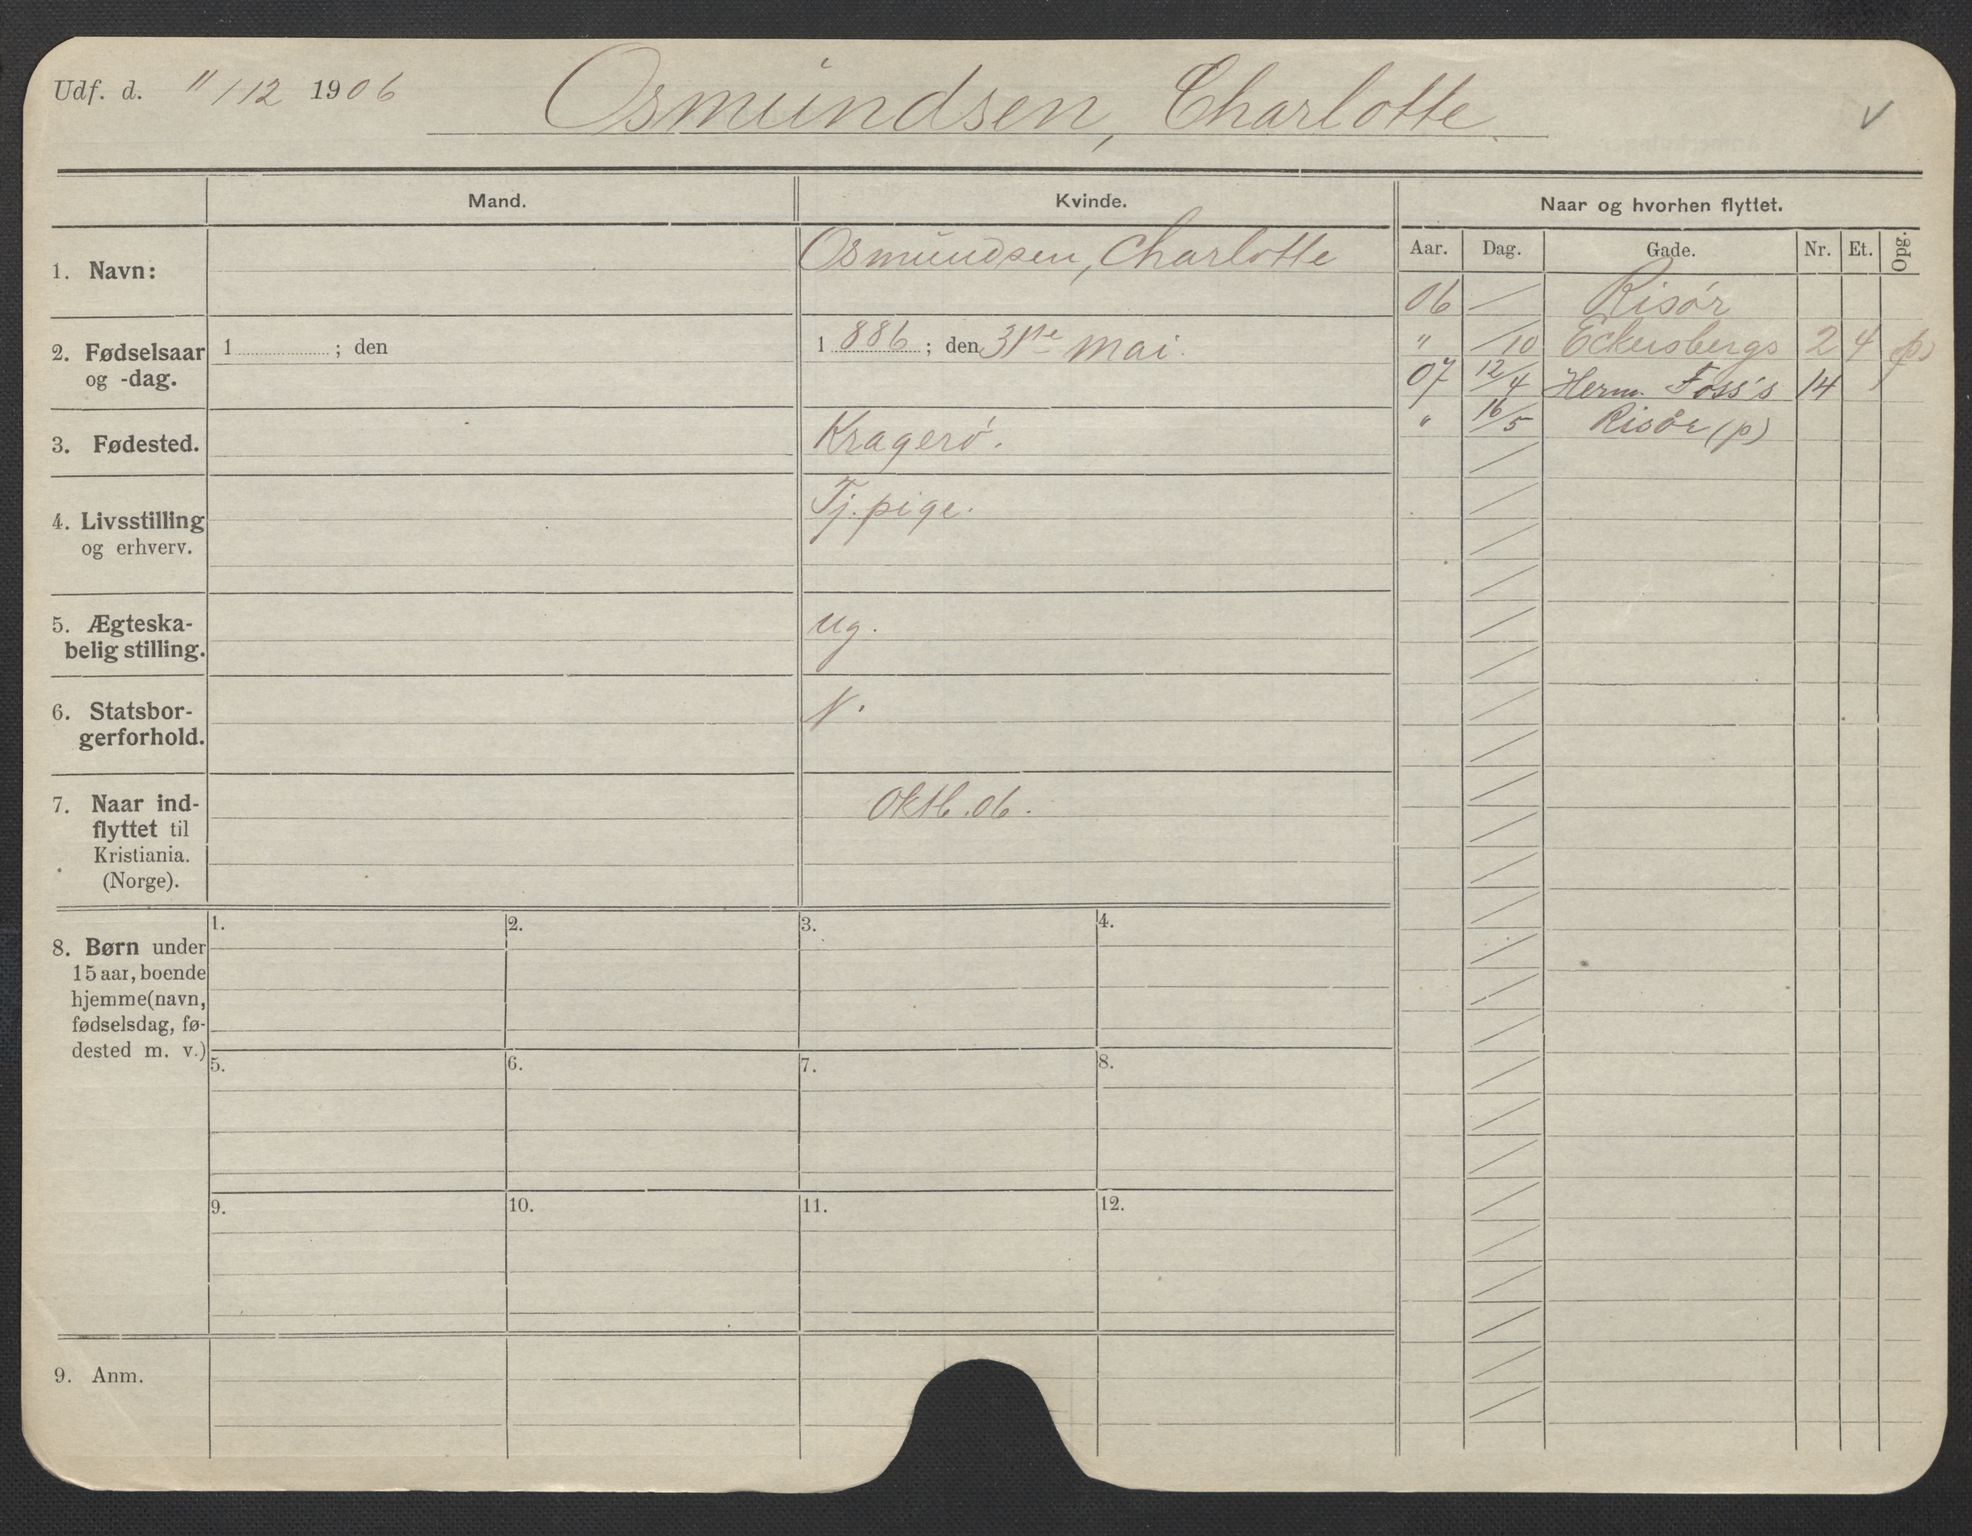 Udf. d. " / 12 1906 Osmundsen, Charlotte
Mand. Kvinde. Naar og hvorhen flyttet.
Aar. Dag. Gade. Nr. Et. Opg.
1. Navn: Osmundsen, Charlotte
2. Fødselsaar og -dag. 1 ; den 1 886 ; den 31te mai.
3. Fødested. Kragerö.
4. Livsstilling og erhverv. Tj. pige.
5. Ægteska-
belig stilling. ug.
6. Statsbor-
gerforhold. N.
7. Naar ind-
flyttet til
Kristiania.
(Norge). Oktb. 06.
06 Risör
" /10 Eckersbergs 2 4 (p)
07 12/4 Herm. Foss's 14
" 16/5 Risör (p)
8. Børn under
15 aar, boende
hjemme (navn,
fødselsdag, fø-
dested m. v.)
1. 2. 3. 4.
5. 6. 7. 8.
9. 10. 11. 12.
9. Anm.